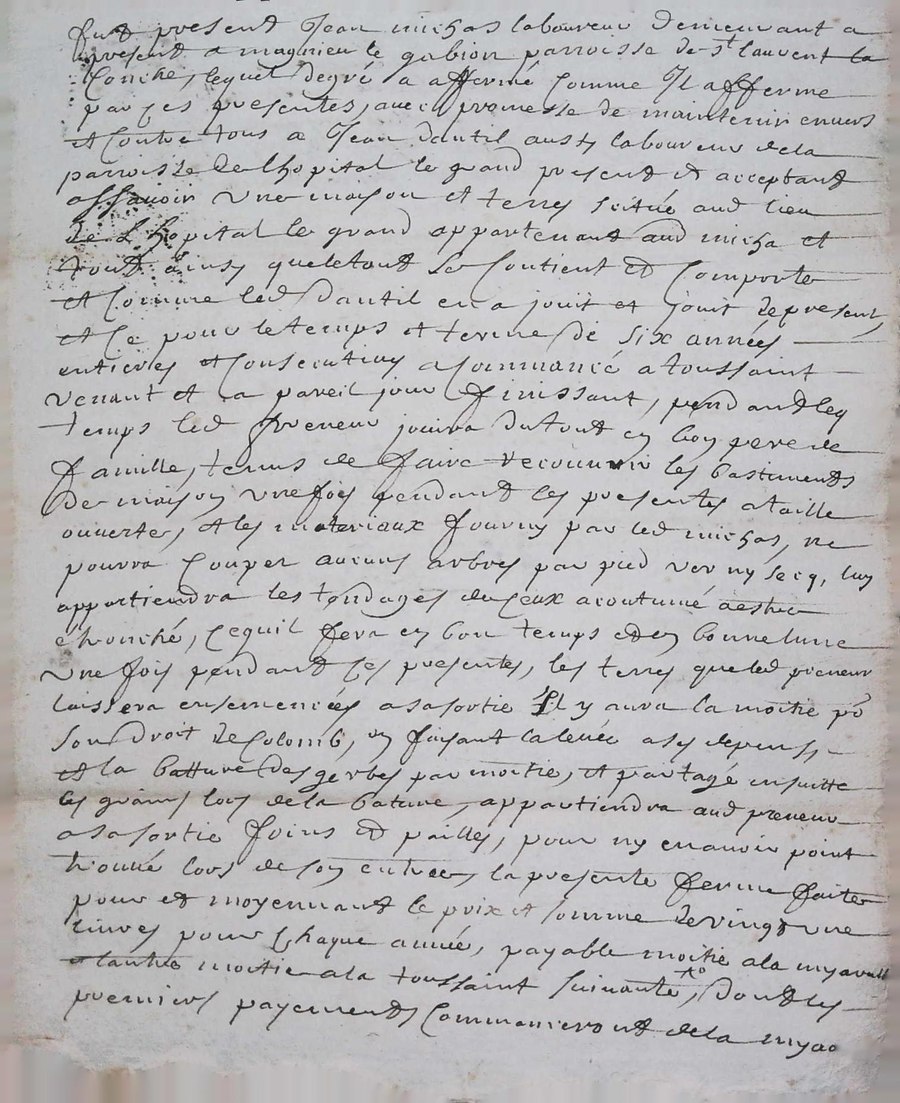 fut present Jean michas laboureur demeurant a
present a magnieu le gabion parroisse de st laurent la
Conche, lequel degré a affermé comme Il afferme
par ces presentes, avec promesse de maintenir envers
et contre tous a Jean dantil aussy laboureur de la
parroisse de lhopital le grand present et acceptant
assavoir une maison et terres scitué aud lieu
de Lhopital le grand appartenant aud micha et
tout ainsy queletout se contient et comporte
et comme led dantil en a jouit et jouit depresent,
et ce pour le temps et terme de six années
entieres et consecutives a commancé a toussaint
venant et a pareil jour finissant, pendant leq
temps led preneur jouira du tout en bon pere de
famille, tenus de faire recouvrir les bastiments
de maison une fois pendant les presentes a taille
ouverte, et les materiaux fourny par led michas, ne
pourra couper aucuns arbres par pied ver ny secq, luy
appartiendra les tondages de ceux acoutumé aestre
etronché, cequil fera en bon temps et en bonne lune
une fois pendant ces presentes, les terres queled preneur
laissera ensemencées a sa sortie Il y aura la moitié po
son droit de colomb, en faisant la levée a ses depenss
et la batture des gerbes par moitié, et partagé ensuitte
les grains lors de la bature, appartiendra aud preneur
a sa sortie foins et pailles, pour ny en avoir point
trouvé lors de son entrée, la presente ferme faite
pour et moyennant le prix et somme de vingt une
livres pour chaque année, payable moitié ala myaoust
et lautre moitié ala toussaint suivante, dont les
premiers payements commanceront de la myao